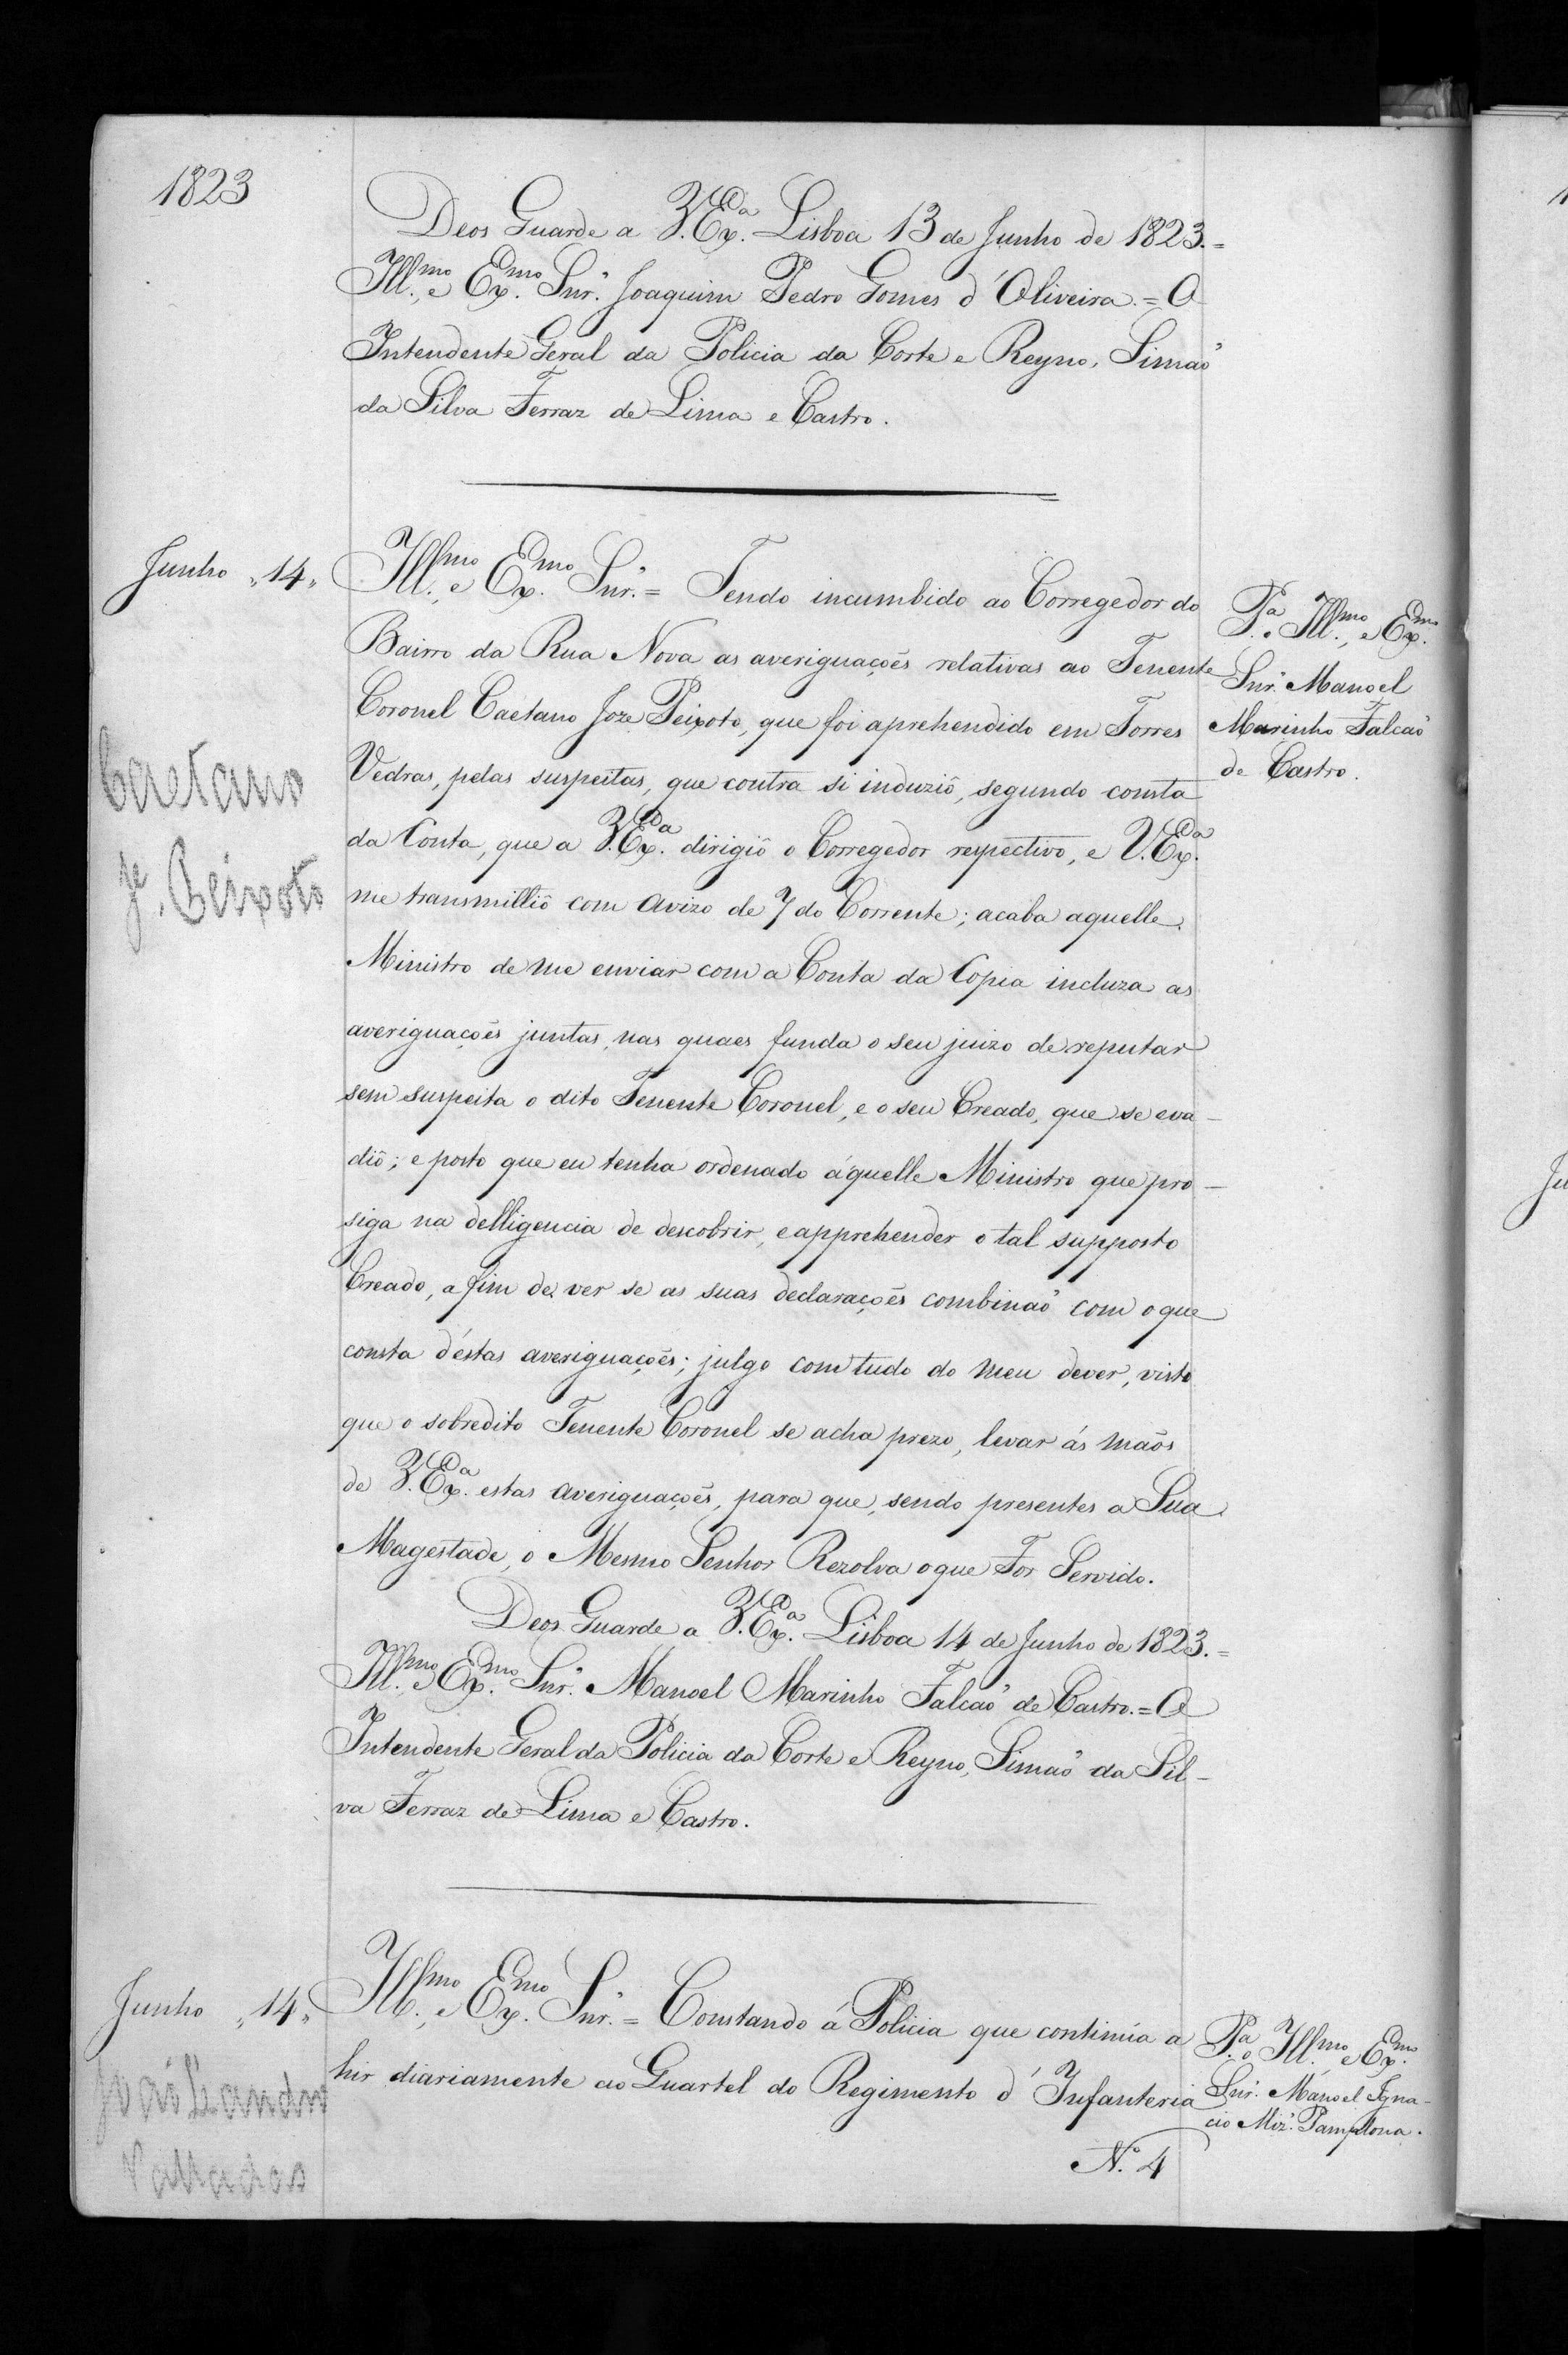 1823
Deos Guarde a V.Ex.ª Lisboa 13 de Junho de 1823.=
Ill.mo e Ex.mo Snr. Joaquim Pedro Gomes d'Oliveira.=O
Intendente Geral da Policia da Corte e Reyno, Simaõ
da Silva Ferraz de Lima e Castro.
Junho „14„
Ill.mo e Ex.mo Snr.= Tendo incumbido ao Corregedor do
Bairro da Rua Nova as averiguaçoẽs relativas ao Tenente
Coronel Caetano Joze Peixoto, que foi aprehendido em Torres
Vedras, pelas suspeitas, que contra si induziô, segundo consta
da Conta, que a V.Ex.ª dirigiô o Corregedor respectivo, e V.Ex.ª
me transmittiô com Avizo de 7 do Corrente; acaba aquelle
Ministro de me enviar com a Conta da Copia incluza as
averiguaçoẽs juntas, nas quaes funda o seu juizo de reputar
sem suspeita o dito Tenente Coronel, e o seu Creado, que se eva-
diô; e posto que eu tenha ordenado áquelle Ministro que pro-
siga na delligencia de descobrir, e apprehender o tal supposto
Creado, a fim de ver se as suas declaraçoẽs combinaõ com o que
consta d'éstas averiguaçoẽs; julgo com tudo do meu dever, visto
que o sobredito Tenente Coronel se acha prezo, levar ás maõs
de V.Ex.ª estas averiguaçoẽs, para que, sendo presentes a Sua
Magestade, o Mesmo Senhor Rezolva o que For Servido.
Deos Guarde a V.Ex.ª Lisboa 14 de Junho de 1823.=
Ill.mo e Ex.mo Snr. Manoel Marinho Falcaõ de Castro.=O
Intendente Geral da Policia da Corte e Reyno, Simaõ da Sil-
va Ferraz de Lima e Castro.
P.ª o Ill.mo e Ex.mo
Snr. Manoel
Marinho Falcaõ
de Castro.
Caetano
Je. Peixoto
Junho „14„
Ill.mo e Ex.mo Snr.= Constando á Policia que continúa a
hir diariamente ao Quartel do Regimento d'Infanteria
N.º 4
P.ª o Ill.mo e Ex.mo
Snr. Manoel Igna-
cio Miz. Pamplona.
João Leandro
Valladas